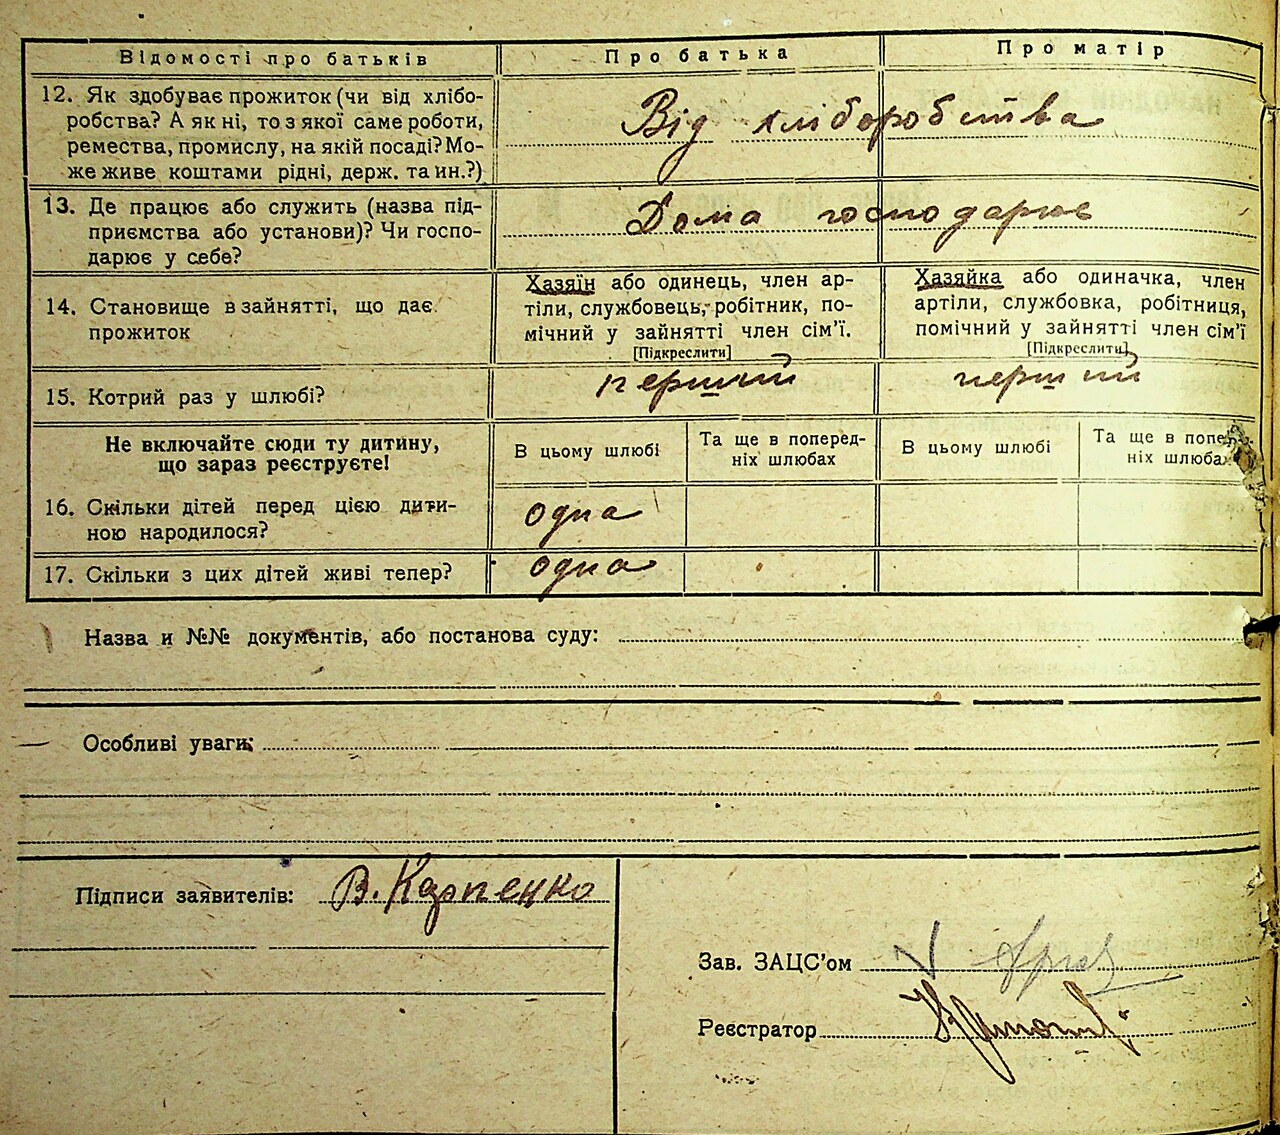 Відомості про батьків Про батька Про матір
12. Як здобуває прожиток (чи від хлібо-
робства? А як ні, то з якої саме роботи,
ремества, промислу, на якій посаді? Мо-
же живе коштами рідні, держ. та ин.?)
Від хліборобства
13. Де працює або служить (назва під-
приємства або установи)? Чи госпо-
дарює у себе?
Дома господарює
14. Становище в зайнятті, що дає
прожиток
Хазяїн або одинець, член ар-
тіли, службовець, робітник, по-
мічний у зайнятті член сім’ї.
[Підкреслити]
Хазяйка або одиначка, член
артіли, службовка, робітниця,
помічний у зайнятті член сім’ї
[Підкреслити]
15. Котрий раз у шлюбі? перший перший
Не включайте сюди ту дитину,
що зараз реєструєте!
В цьому шлюбі
Та ще в поперед-
ніх шлюбах
В цьому шлюбі
Та ще в попе
ніх шлюбах
16. Скільки дітей перед цією дити-
ною народилося?
одна
17. Скільки з цих дітей живі тепер? одна
Назва и №№ документів, або постанова суду:
Особливі уваги:
Підписи заявителів: В. Карпенко
Зав. ЗАЦС’ом
Реєстратор